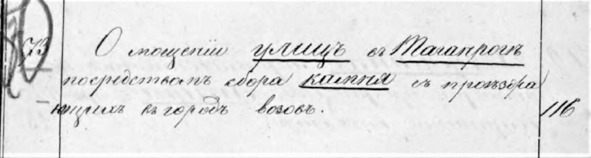 О мощеніи улицъ въ Таганрогѣ
посредствомъ сбора камня съ проѣзжа
ющихъ въ городъ возовъ. 116